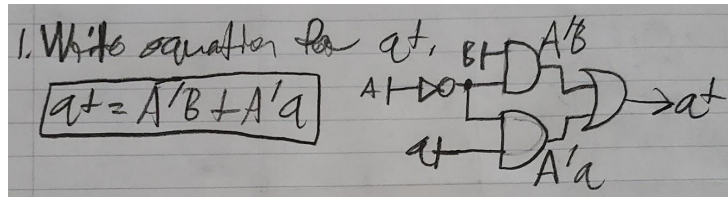 1. Write equation for q+.
q+ = A'B + A'q
B
A'B
A
q+
q
A'q